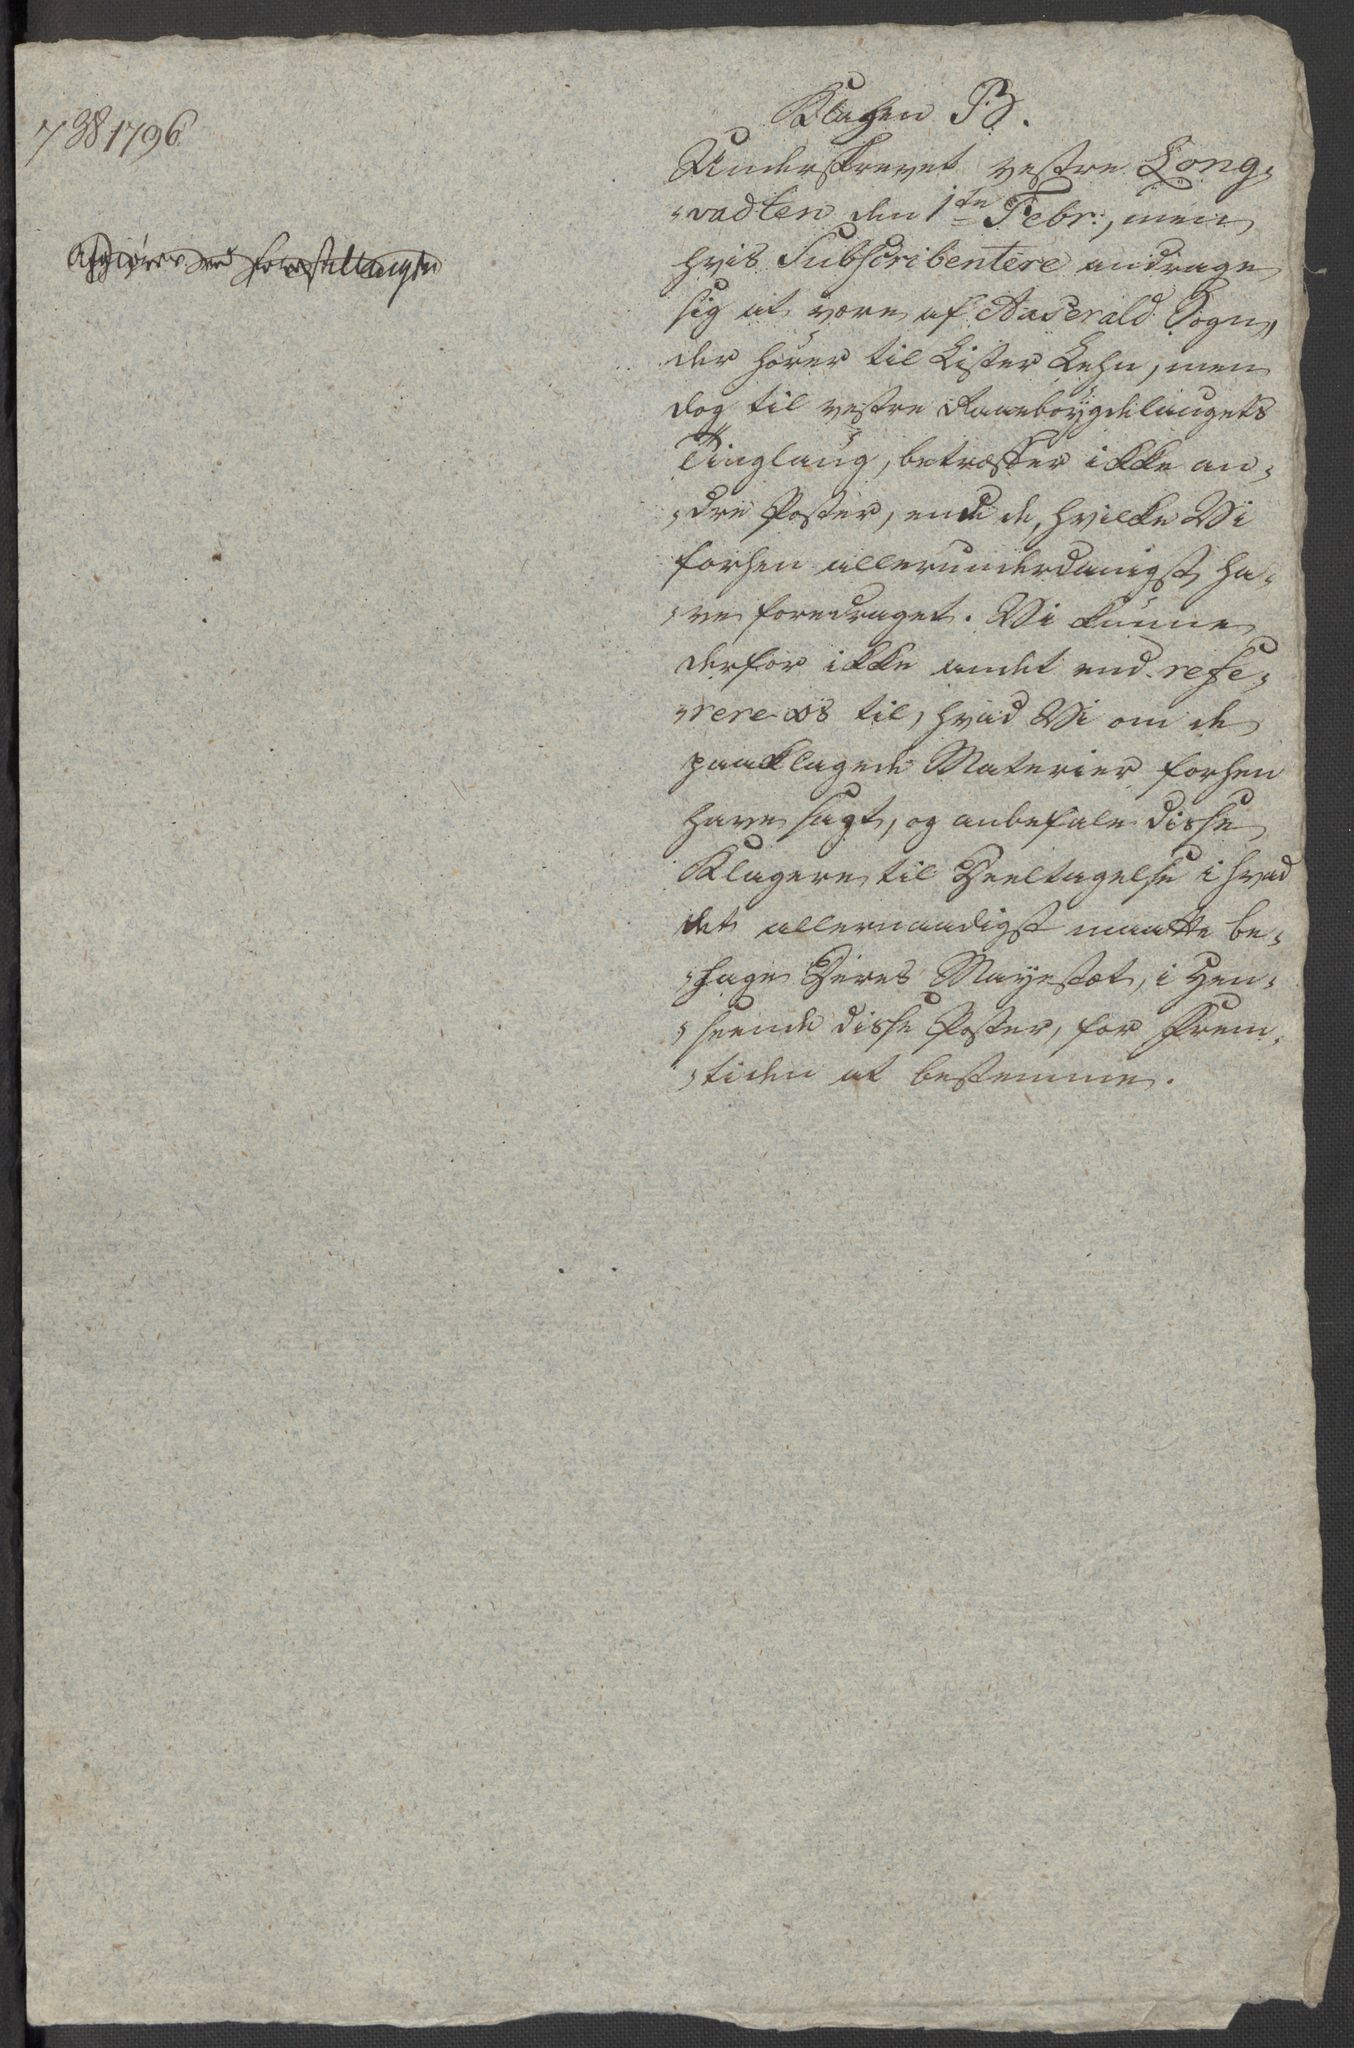 738 1796
Afgiøres ved forestillingen
Klagen B.
Underskrevet vestre Long-
-vadten den 1te Febr:, men
hvis Subscribentere andrage
sig at være af Aaserald Sogn,
der hører til Lister Lehn, men
dog til vestre Raaebøygdelaugets
Tinglaug, betræffer ikke an-
-dre Poster, end de, hvilke Vi
forhen allerunderdanigst ha-
-ve foredraget. Vi kunne
derfor ikke andet end refe-
-rere os til, hvad Vi om de
paaklagede Materier forhen
have sagt, og anbefale disse
Klagere til Deeltagelse i hvad
det allernaadigst maatte be-
-hage Deres Mayestæt, i Hen-
-seende disse Poster, for Frem-
-tiden at bestemme.